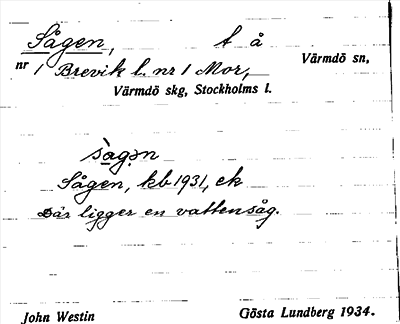 Sågen, t å Värmdö sn,
nr 1 Brevik l. nr 1 Mor,
Värmdö skg, Stockholms l.
sàgən
Sågen, kb 1931, ek
Där ligger en vattensåg.
John Westin Gösta Lundberg 1934.